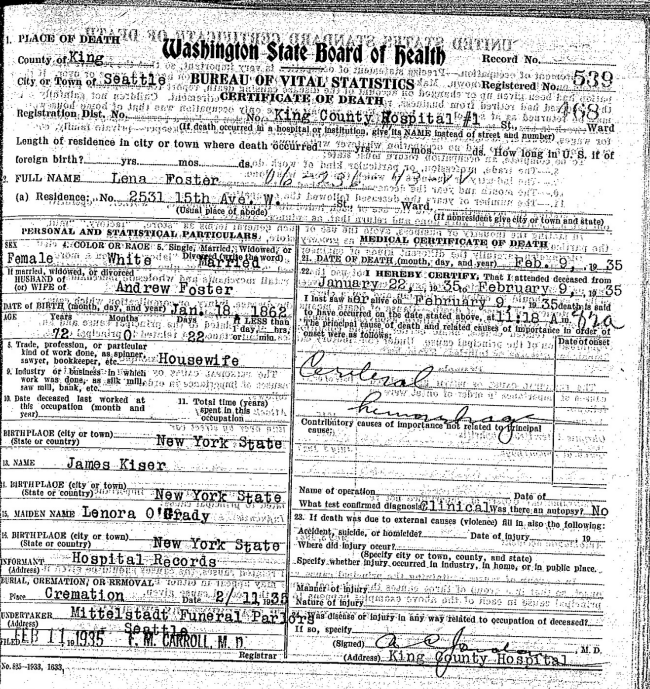 1. PLACE OF DEATH
Washington State Board of Health
Record No.
County of King
BUREAU OF VITAL STATISTICS
Registered No. 539
City or Town of Seattle
CERTIFICATE OF DEATH
468
Registration Dist. No. No. King County Hospital #1 St., Ward
(If death occurred in a hospital or institution, give its NAME instead of street and number)
Length of residence in city or town where death occurred yrs. mos. ds. How long in U. S. if of
foreign birth? yrs. mos. ds.
2. FULL NAME Lena Foster
(a) Residence: No. 2531 15th Ave. W. St., Ward.
(Usual place of abode) (If nonresident give city or town and state)
PERSONAL AND STATISTICAL PARTICULARS.
SEX 4. COLOR OR RACE 5. Single, Married, Widowed, or
Divorced (write the word)
Female White Married
If married, widowed, or divorced
HUSBAND of
(or) WIFE of Andrew Foster
DATE OF BIRTH (month, day, and year) Jan. 18, 1862
AGE Years Months Days If LESS than
1 day hrs.
72 0 22 or min.
8. Trade, profession, or particular
kind of work done, as spinner,
sawyer, bookkeeper, etc. Housewife
9. Industry or business in which
work was done, as silk mill,
saw mill, bank, etc.
10. Date deceased last worked at
this occupation (month and
year)
11. Total time (years)
spent in this
occupation
BIRTHPLACE (city or town)
(State or country) New York State
13. NAME James Kiser
14. BIRTHPLACE (city or town)
(State or country) New York State
15. MAIDEN NAME Lenora O'Grady
16. BIRTHPLACE (city or town)
(State or country) New York State
INFORMANT Hospital Records
(Address)
BURIAL, CREMATION, OR REMOVAL
Place Cremation Date 2/ 11, 1935
UNDERTAKER Mittelstadt Funeral Parlors
(Address) Seattle
FILED FEB 11 1935 F. M. CARROLL, M. D.
Registrar
No. 825-1933, 1633.
MEDICAL CERTIFICATE OF DEATH
21. DATE OF DEATH (month, day, and year) Feb. 9, 1935
22. I HEREBY CERTIFY, That I attended deceased from
January 22, 1935, February 9, 1935
I last saw her alive on February 9, 1935 death is said
to have occurred on the date stated above, at 11:18 A.m.
The principal cause of death and related causes of importance in order of
onset were as follows:
Date of onset
Cerebral
hemorrhage
Contributory causes of importance not related to principal
cause:
Name of operation Date of
What test confirmed diagnosis? Clinical Was there an autopsy? No
23. If death was due to external causes (violence) fill in also the following:
Accident, suicide, or homicide? Date of injury , 19
Where did injury occur?
(Specify city or town, county, and state)
Specify whether injury occurred in industry, in home, or in public place.
Manner of injury
Nature of injury
Was disease or injury in any way related to occupation of deceased?
If so, specify
(Signed) , M. D.
(Address) King County Hospital